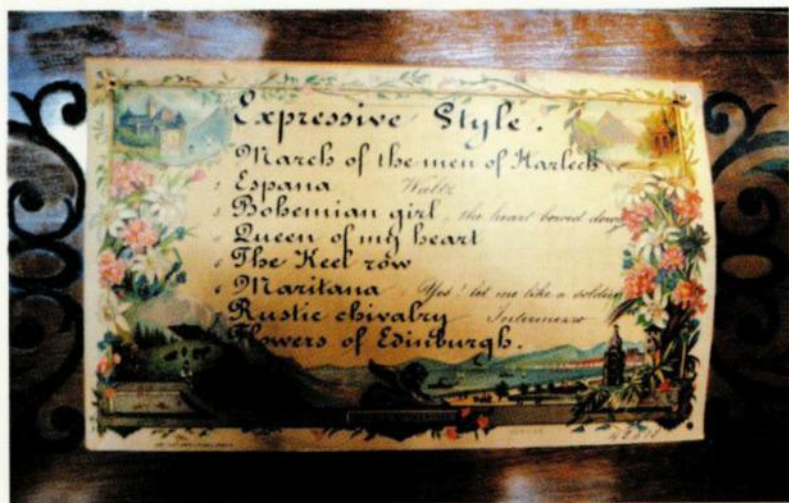 Expressive Style.
March of the men of Harlech
2 Espana Waltz
3 Bohemian girl, the heart bowed down
4 Queen of my heart
5 The Keel row
6 Maritana Yes! let me like a soldier
7 Rustic chivalry Intermezzo
Flowers of Edinburgh.